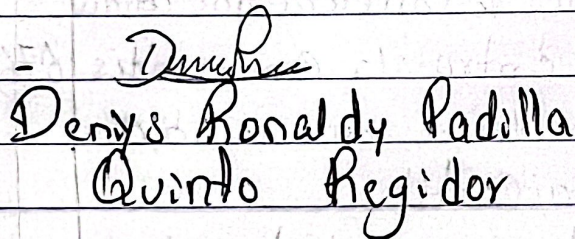 -
Denys Ronaldy Padilla
Quinto Regidor